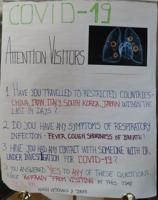 COVID-19
ATTENTION VISITORS
1. HAVE YOU TRAVELLED TO RESTRICTED COUNTRIES-
CHINA, IRAN, ITALY, SOUTH KOREA, JAPAN WITHIN THE
LAST 14 DAYS?
2. DO YOU HAVE ANY SYMPTOMS OF RESPIRATORY
INFECTION - FEVER, COUGH, SHORTNESS OF BREATH?
3. HAVE YOU HAD CONTACT WITH SOMEONE WITH OR
UNDER INVESTIGATION FOR COVID-19?
IF YOU ANSWERED YES TO ANY OF THESE QUESTIONS,
REFRAIN FROM VISITING AT THIS TIME